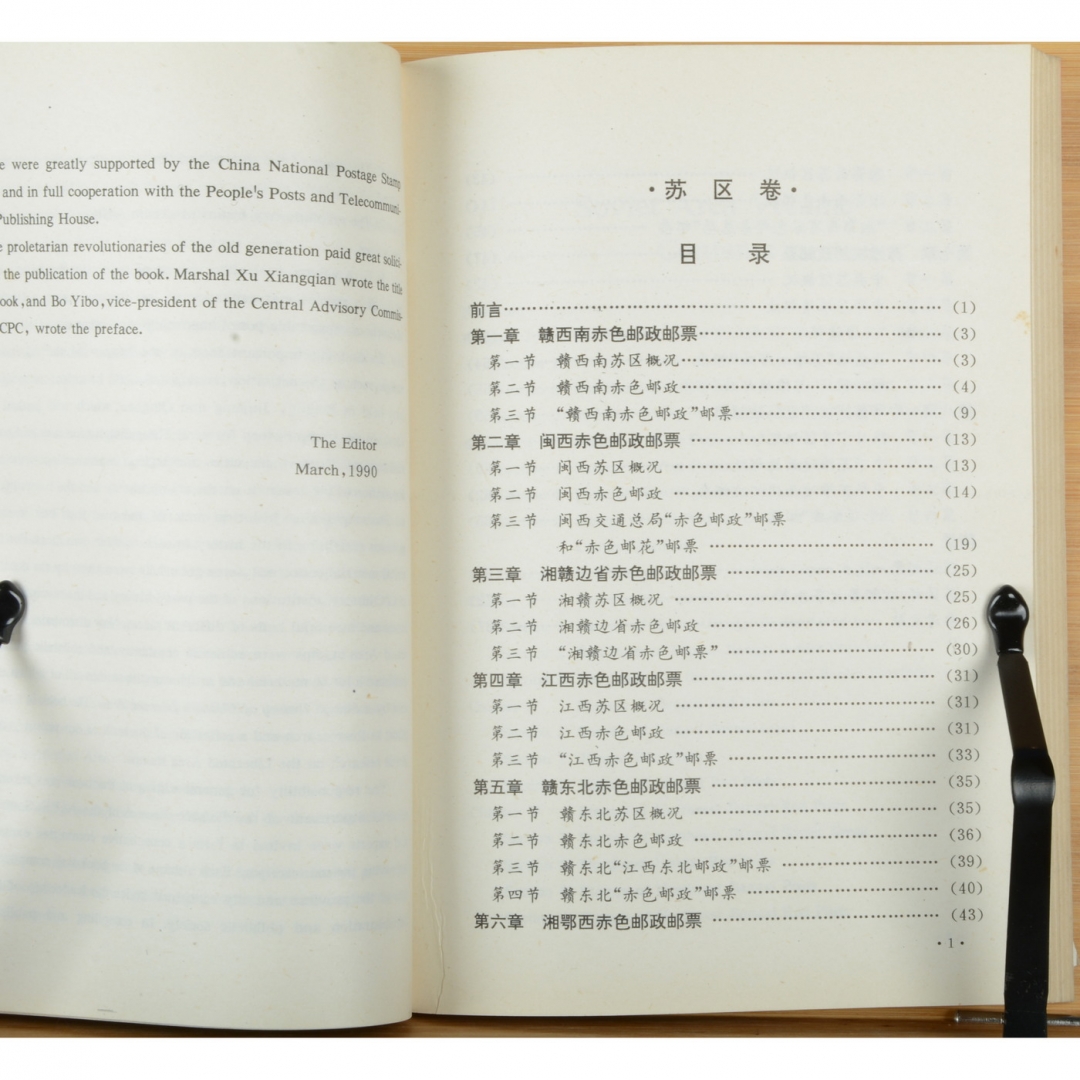 e were greatly supported by the China National Postage Stamp
and in full cooperation with the People's Posts and Telecommuni-
Publishing House.
e proletarian revolutionaries of the old generation paid great solici-
the publication of the book. Marshal Xu Xiangqian wrote the title
ook, and Bo Yibo, vice-president of the Central Advisory Commis-
CPC, wrote the preface.
The Editor
March, 1990
·苏区卷·
目 录
前言……………………………………………(1)
第一章 赣西南赤色邮政邮票……………………………(3)
第一节 赣西南苏区概况……………………………(3)
第二节 赣西南赤色邮政……………………………(4)
第三节 “赣西南赤色邮政”邮票……………………………(9)
第二章 闽西赤色邮政邮票……………………………(13)
第一节 闽西苏区概况……………………………(13)
第二节 闽西赤色邮政……………………………(14)
第三节 闽西交通总局“赤色邮政”邮票
和“赤色邮花”邮票……………………………(19)
第三章 湘赣边省赤色邮政邮票……………………………(25)
第一节 湘赣苏区概况……………………………(25)
第二节 湘赣边省赤色邮政……………………………(26)
第三节 “湘赣边省赤色邮票”……………………………(30)
第四章 江西赤色邮政邮票……………………………(31)
第一节 江西苏区概况……………………………(31)
第二节 江西赤色邮政……………………………(31)
第三节 “江西赤色邮政”邮票……………………………(33)
第五章 赣东北赤色邮政邮票……………………………(35)
第一节 赣东北苏区概况……………………………(35)
第二节 赣东北赤色邮政……………………………(36)
第三节 赣东北“江西东北邮政”邮票……………………………(39)
第四节 赣东北“赤色邮政”邮票……………………………(40)
第六章 湘鄂西赤色邮政邮票……………………………(43)
·1·